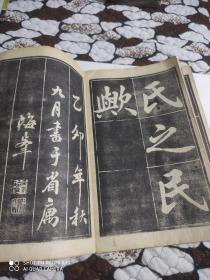 氏之民
歟
乙卯年秋
九月書于省庽
齡皋